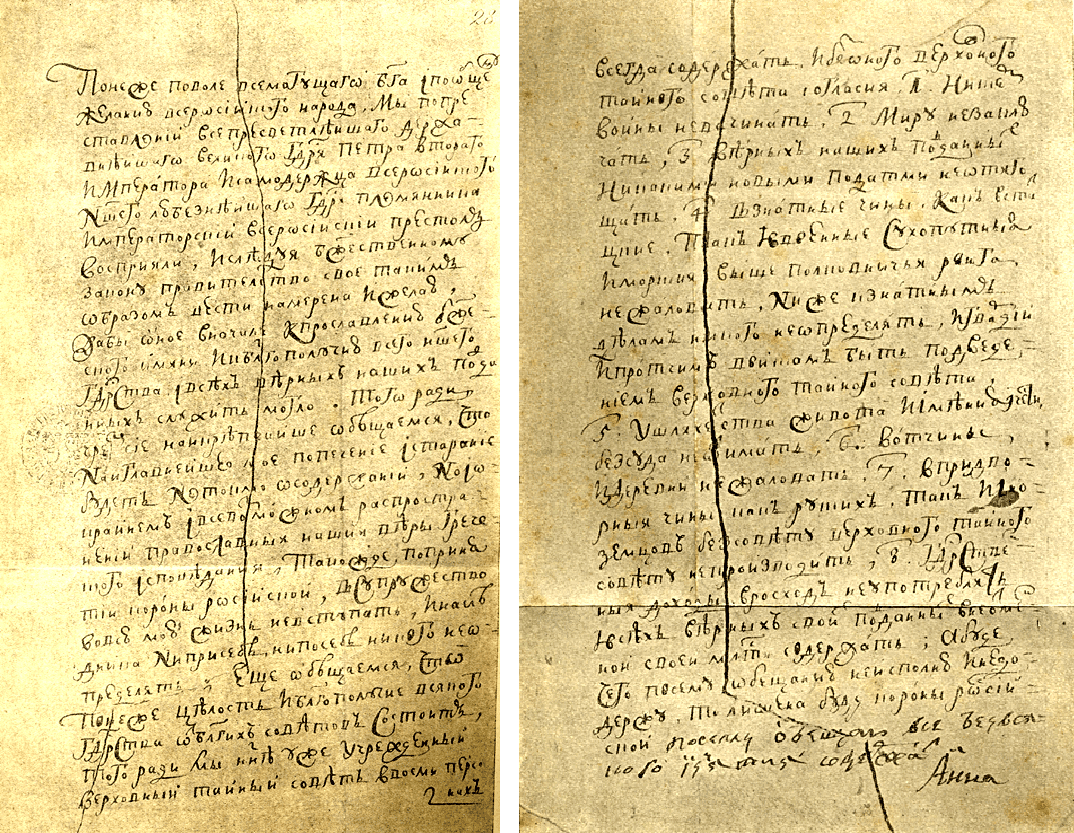 28
Понеже поволе всемогущаго бга ıпообще
желанию всеросиıского народа, Мы попре
ставлениı всепресветлѣишаго Держа-
внѣишаго великого Гдря Петра втораго
Императора Исамодержца всеросиıского
Ншего любезнѣишаго Гдря племянника
Императорскиı всеросиıскиı престолъ
восприяли, Ислѣдуя бжественному
закону правителство свое такимъ
ѡбразомъ вести намерена Ижелаю,
Дабы ѡное вначале Кпрославлению бже-
ского имяни Икблгополучию всего ншего
Гдрства ıвсѣхъ вѣрныхъ нашихъ Подда
нныхъ служить могло. Того ради,
чрезсие наикрѣпчаише ѡбѣщаемся, что
Наиглавнеишее мое попечение ıстарание
будетъ Нетокмо ѡсодержаниı, Ноıѡ
краинемъ ıвсевозможномъ распростра-
нениı православныя нашия вѣры Грече-
ского ıсповѣдания, Такожде, поприня
тиı короны росиıскои, всупружество
вовсю мою жизнь невступать, Инаслѣ
дника Априсебѣ, нипосебѣ никого неѡ-
пределять, Еще ѡбѣщаемся, Что
Понеже цѣлость Иблгополучие всякого
Гдрства ѿблгихъ совѣтовъ Состоитъ,
Того ради Мы ннѣ уже Учрежденныи
Верховныи таиныи совѣтъ ввосми персо
2 нахъ
всегда содержать, Ибезоного верховного
таиного совѣта согласия, 1. Нискемъ
воины невсчинать, 2 Миру незаклю
чать, 3. вѣрныхъ нашихъ Подданныхъ
Никакими новыми Податми неѿтяго
щать. 4 Взнатные чины, Какъ встатц
цкие. Такъ Ивоенные Сухопутныя
Иморския выше полковничья ранга
нежаловать, Ниже кзнатнымъ
дѣламъ никого неѡпределять, Игвардиı
Ипротчимъ воискомъ быть подведе-
ниемъ верховного таиного совѣта,
5. Ушляхетства живота Иимѣния Ичести,
безсуда неѿимать, 6. Вотчины,
Идеревни нежаловать, 7, впридво-
рныя чины какъ рускихъ, Такъ Ино-
земцовъ безсовѣту верховного таиного
совѣту непроизводить, 8 Гдрстве-
нныя доходы вросходъ неупотреблять
Ивсѣхъ вѣрныхъ свои Подданныхъ внеѿме-
нои своеи млсти содержать, Абуде
чего посему ѡбещанию неисполню Инедо-
держу. То лишена буду короны росиı-
скои посему обещаю все безвся-
кого ıзятия содержать
Анна